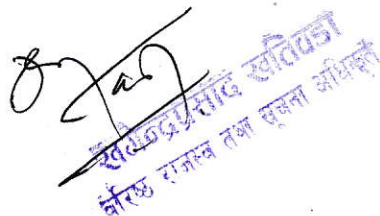 खतिवडा
वरिष्ठ राजस्व तथा सूचना अधिकृत